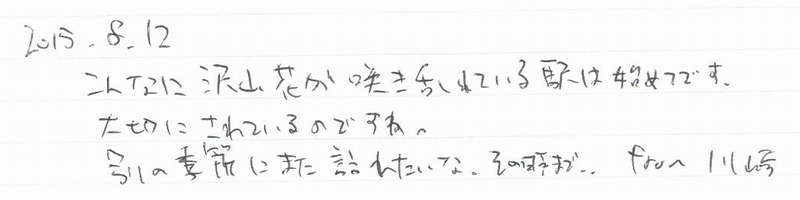 2015.8.12
こんなに沢山花が咲き乱れている駅は始めてです。
大切にされているのですね。
別の季節にまた訪れたいな、その時まで.. from 川崎